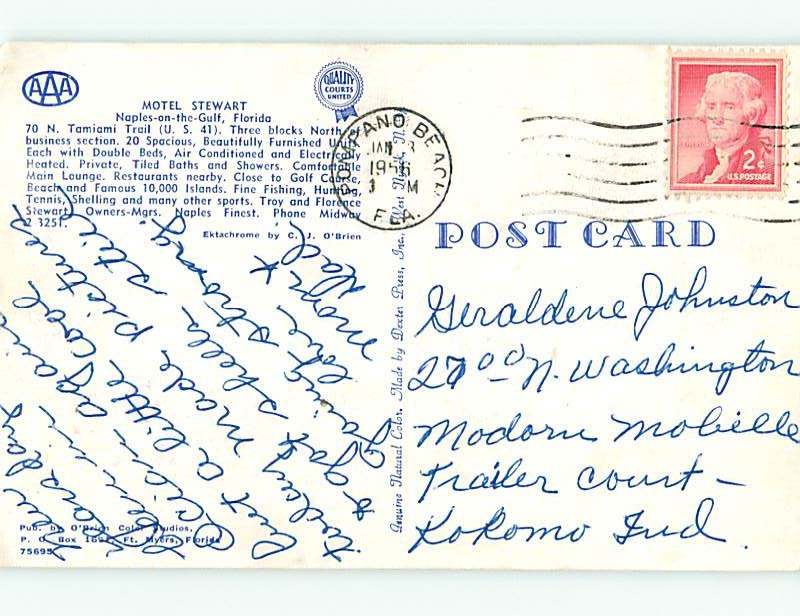 AAA
QUALITY
COURTS
UNITED
MOTEL STEWART
Naples-on-the-Gulf, Florida
70 N. Tamiami Trail (U. S. 41). Three blocks North of
business section. 20 Spacious, Beautifully Furnished Units
Each with Double Beds, Air Conditioned and Electrically
Heated. Private, Tiled Baths and Showers. Comfortable
Main Lounge. Restaurants nearby. Close to Golf Course,
Beach and Famous 10,000 Islands. Fine Fishing, Hunting,
Tennis, Shelling and many other sports. Troy and Florence
Stewart, Owners-Mgrs. Naples Finest. Phone Midway
2 3251.
Ektachrome by C. J. O'Brien
POMPANO BEACH
JAN 3
1956
M
FLA.
2¢
U.S. POSTAGE
Genuine Natural Color. Made by Dexter Press, Inc., West Nyack, N.
POST CARD
Geraldene Johnston
2700 N. Washington
Modorn Mobille
Trailer Court –
Kokomo Ind.
Dear
Been in
Ocean again
but a little cool
today made pictures
& got shells. still
going
love
strong.
mom &
Dad.
Pub. by O'Brien Color Studios,
P. O. Box 169, Ft. Myers, Florida
75695